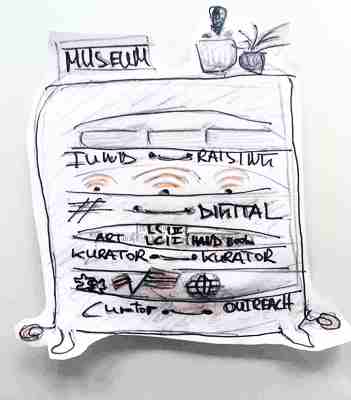 MUSEUM
FUND RAISING
# DIGITAL
ART HAND Book
KURATOR KURATOR
Curator OUTREACH